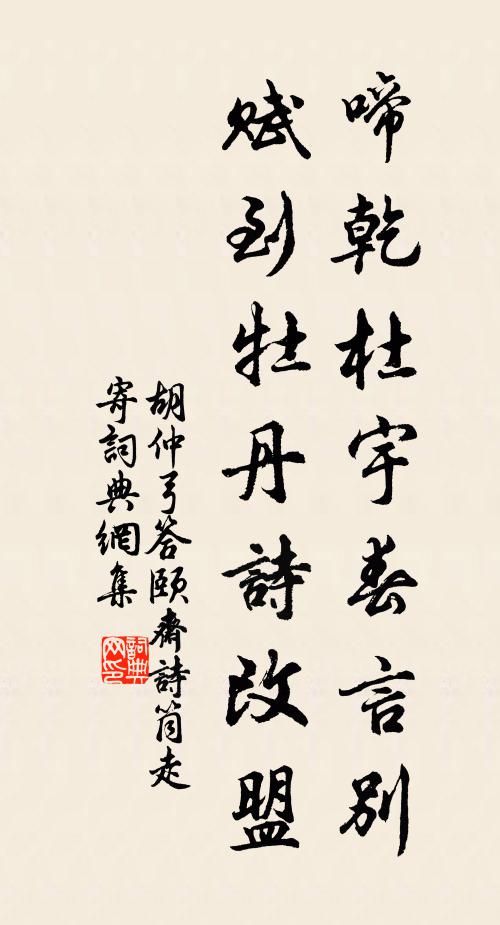 啼乾杜宇春言別
賦到牡丹詩改盟
胡仲弓答頤齋詩筒走
寄詞典網集
詞典網印